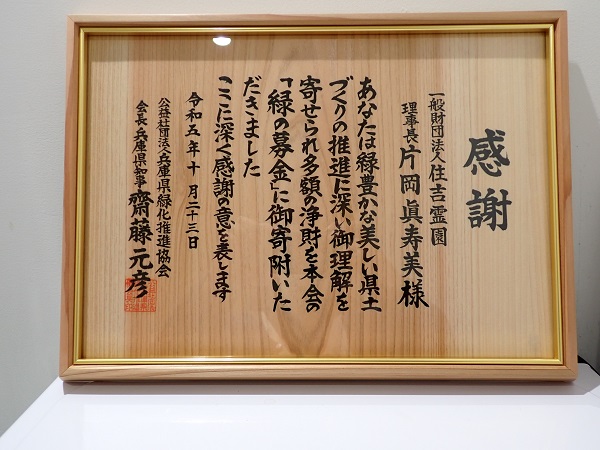 感謝
一般財団法人住吉霊園
理事長片岡眞寿美様
あなたは緑豊かな美しい県土
づくりの推進に深い御理解を
寄せられ多額の浄財を本会の
「緑の募金」に御寄附いた
だきました
ここに深く感謝の意を表します
令和五年十月二十三日
公益社団法人兵庫県緑化推進協会
会長兵庫県知事齋藤元彦